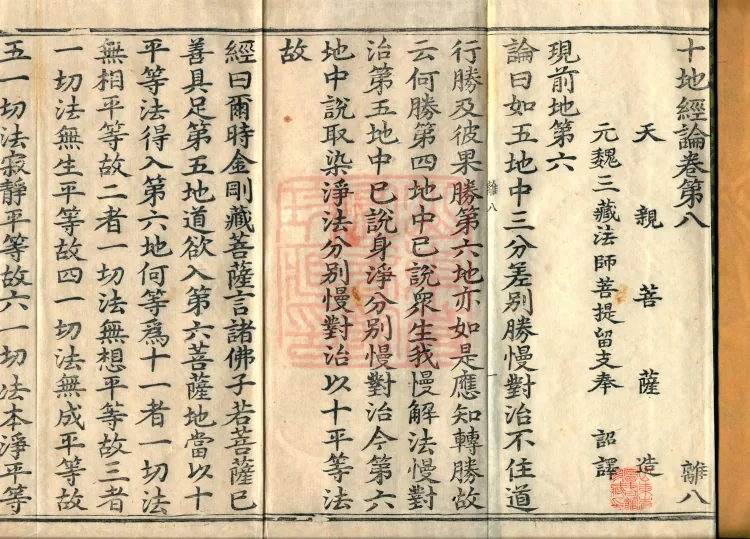 十地經論卷第八 離八
天親菩薩造
元魏三藏法師菩提留支奉 詔譯
現前地第六
論曰如五地中三分差別勝慢對治不住道
行勝及彼果勝第六地亦如是應知轉勝故
離八
云何勝第四地中已說衆生我慢解法慢對
治第五地中已說身淨分別慢對治今第六
地中說取染淨法分別慢對治以十平等法
故
經曰爾時金剛藏菩薩言諸佛子若菩薩已
善具足第五地道欲入第六菩薩地當以十
平等法得入第六地何等爲十一者一切法
無相平等故二者一切法無想平等故三者
一切法無生平等故四一切法無成平等故
五一切法寂靜平等故六一切法本淨平等